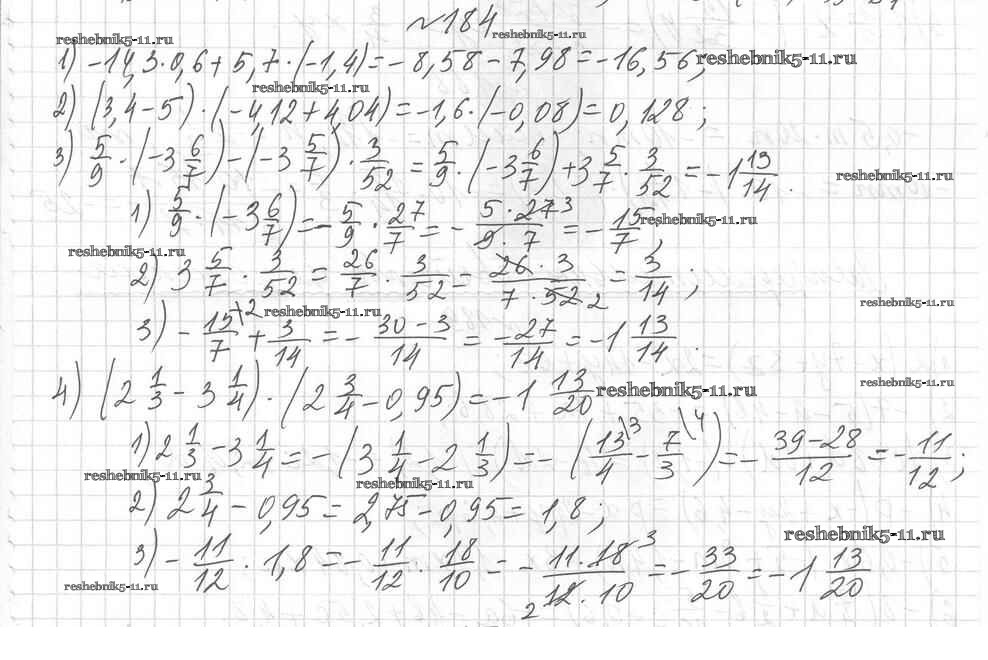 №184
reshebnik5-11.ru reshebnik5-11.ru
1) -14,3·0,6+5,7·(-1,4)=-8,58-7,98=-16,56; reshebnik5-11.ru
reshebnik5-11.ru
2) (3,4-5)·(-4,12+4,04)=-1,6·(-0,08)=0,128;
3) 5/9·(-3 6/7)-(-3 5/7)·3/52=5/9·(-3 6/7)+3 5/7·3/52=-1 13/14. reshebnik5-11.ru
1) 5/9·(-3 6/7)=-5/9·27/7=-5·27 3/9·7=-15/7; reshebnik5-11.ru
reshebnik5-11.ru
2) 3 5/7·3/52=26/7·3/52=26·3/7·52 2=3/14; reshebnik5-11.ru
reshebnik5-11.ru
3) -15\2/7+3/14=-30-3/14=-27/14=-1 13/14.
4) (2 1/3-3 1/4)·(2 3/4-0,95)=-1 13/20 reshebnik5-11.ru reshebnik5-11.ru
1) 2 1/3-3 1/4=-(3 1/4-2 1/3)=-(13\3/4-7\4/3)=-39-28/12=-11/12;
reshebnik5-11.ru reshebnik5-11.ru
2) 2 3/4-0,95=2,75-0,95=1,8;
reshebnik5-11.ru
3) -11/12·1,8=-11/12·18/10=-11·18 3/2 12·10=-33/20=-1 13/20
reshebnik5-11.ru